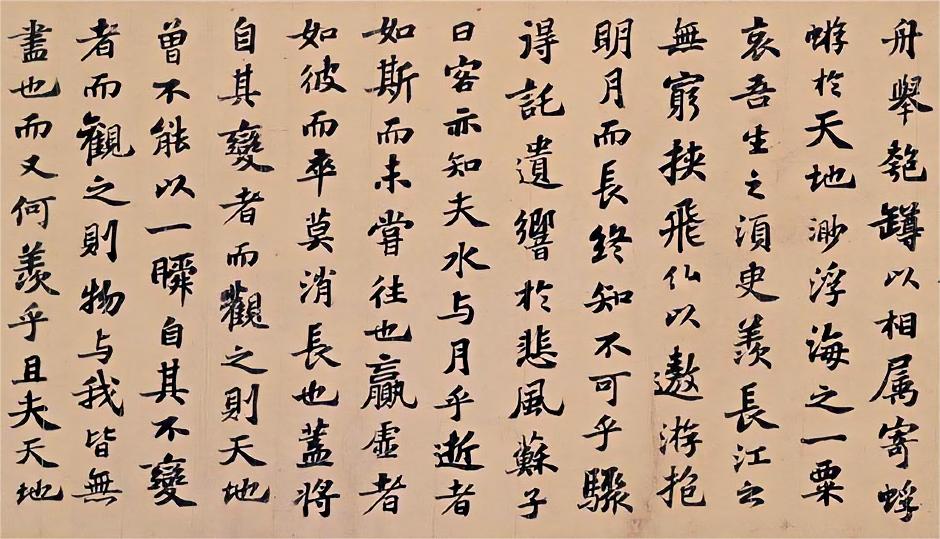 舟舉匏罇以相属寄蜉
蝣扵天地渺浮海之一粟
哀吾生之須臾羨長江之
無窮挾飛仙以遨游抱
明月而長終知不可乎驟
得託遺響扵悲風蘇子
曰客亦知夫水与月乎逝者
如斯而未嘗往也贏虛者
如彼而卒莫消長也蓋將
自其變者而觀之則天地
曾不能以一瞬自其不變
者而觀之則物与我皆無
盡也而又何羨乎且夫天地